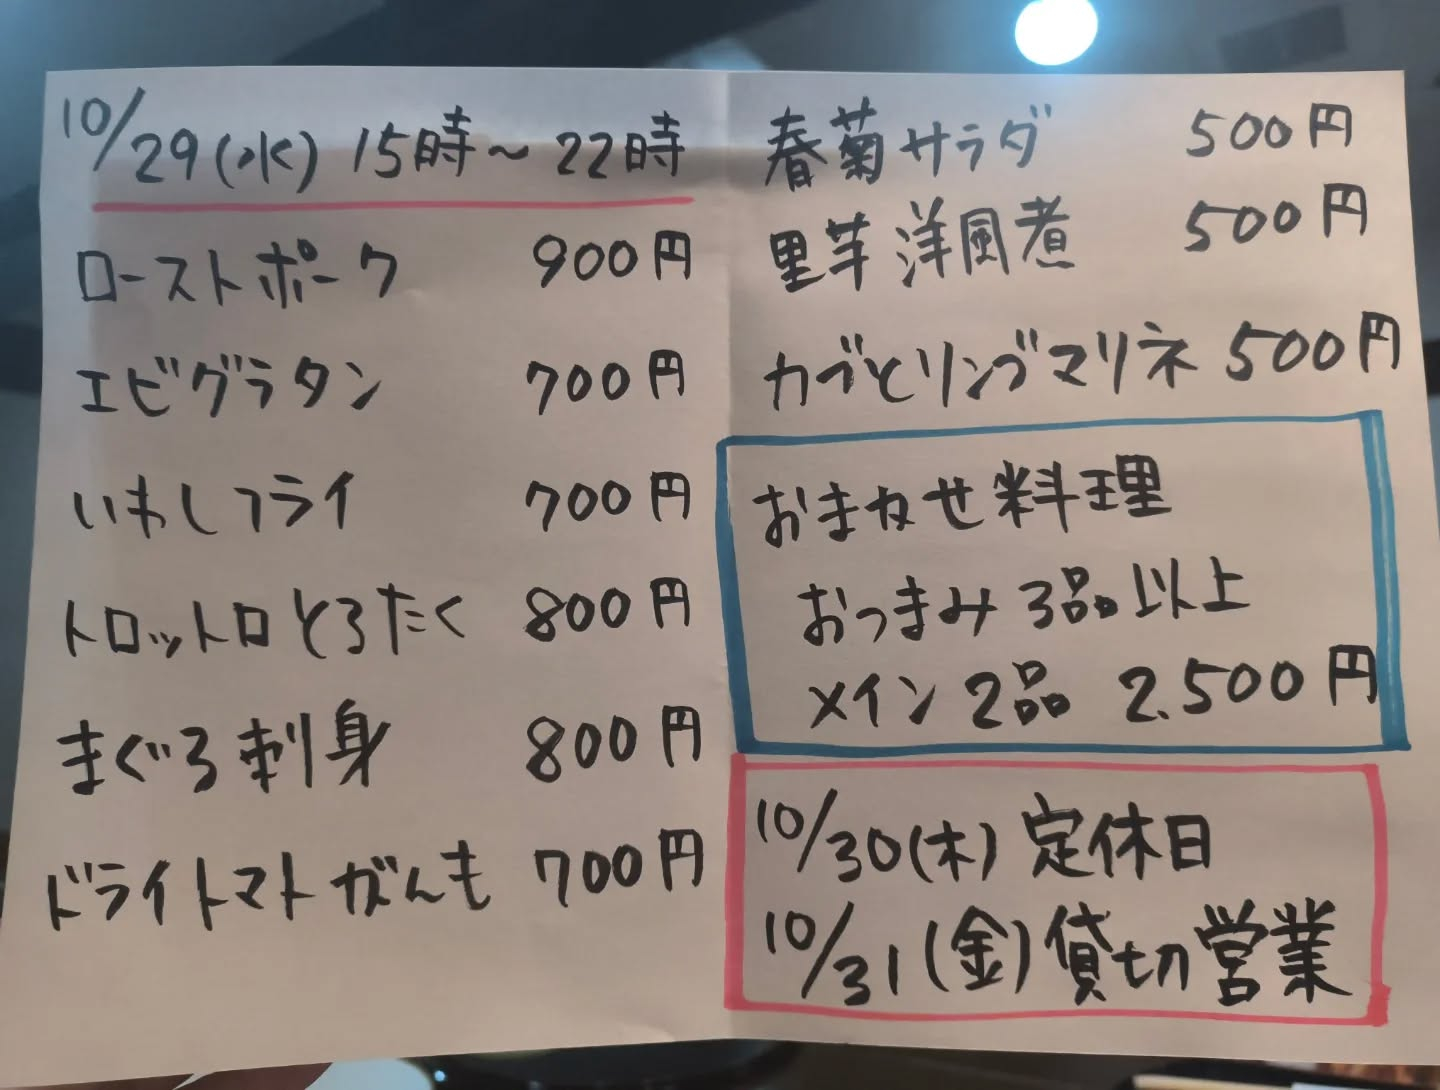 10/29(水) 15時～22時
ローストポーク 900円
エビグラタン 700円
いわしフライ 700円
トロットロとろたく 800円
まぐろ刺身 800円
ドライトマトがんも 700円
春菊サラダ 500円
里芋洋風煮 500円
カブとリンゴマリネ 500円
おまかせ料理
おつまみ3品以上
メイン2品 2.500円
10/30(木)定休日
10/31(金)貸切営業